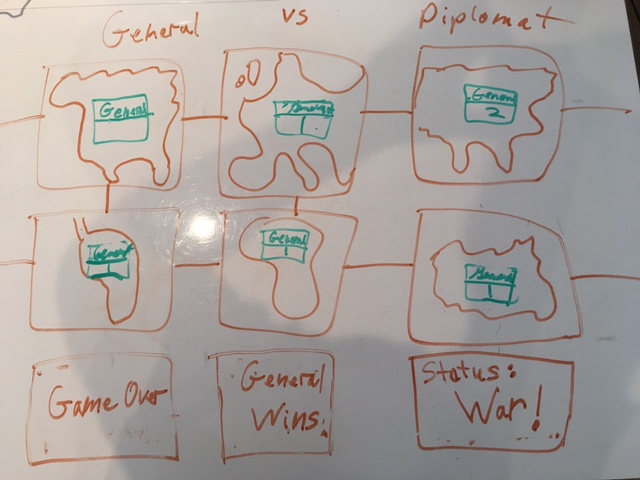 General vs Diplomat
General
General
2
1
General
1
General
1
General
1
Game Over
General
Wins.
Status:
War!